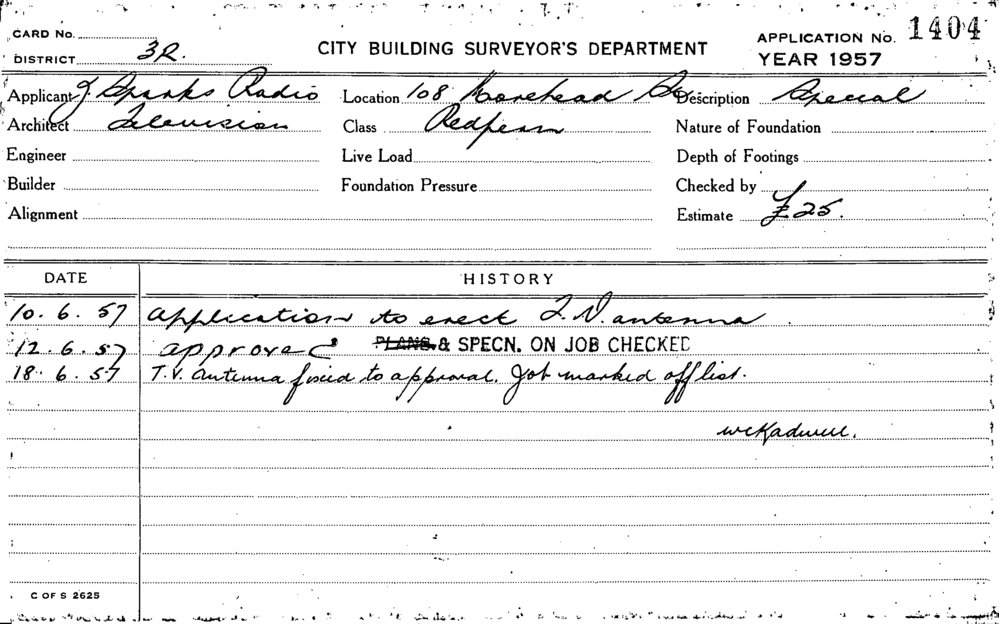 CARD No.
DISTRICT 3R.
CITY BUILDING SURVEYOR'S DEPARTMENT
APPLICATION No. 1404
YEAR 1957
Applicant J Sparks Radio Location 108 Morehead St Description Special
Architect Television Class Redfern Nature of Foundation
Engineer Live Load Depth of Footings
Builder Foundation Pressure Checked by
Alignment Estimate £25.
DATE HISTORY
10. 6. 57 application to erect T.V. antenna
12. 6. 57 approved PLANS & SPECN. ON JOB CHECKED
18. 6. 57 T.V. antenna fixed to approval. Job marked off list.
C OF S 2625